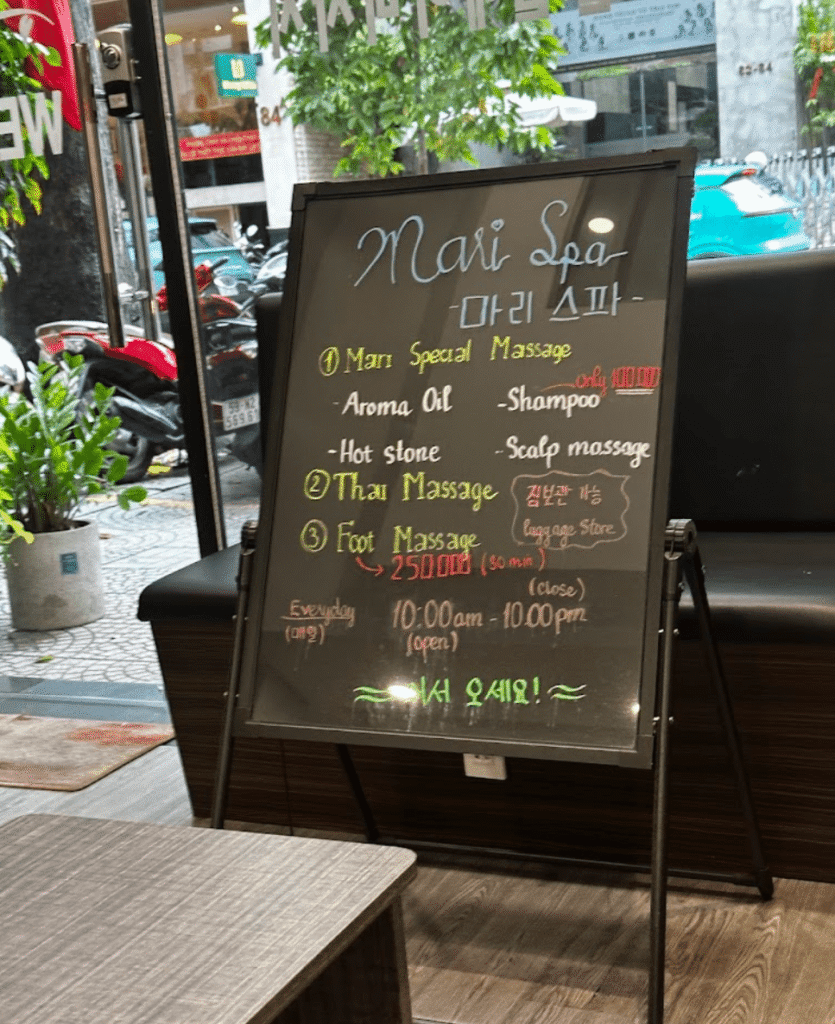 84
82-84
WE
Mari Spa
-마리 스파-
① Mari Special Massage
only 100.000
- Aroma Oil - Shampoo
- Hot stone - Scalp massage
② Thai Massage
짐보관 가능
luggage Store
③ Foot Massage
250.000 (30 min)
(close)
Everyday 10:00am - 10:00pm
(매일) (open)
오세요!